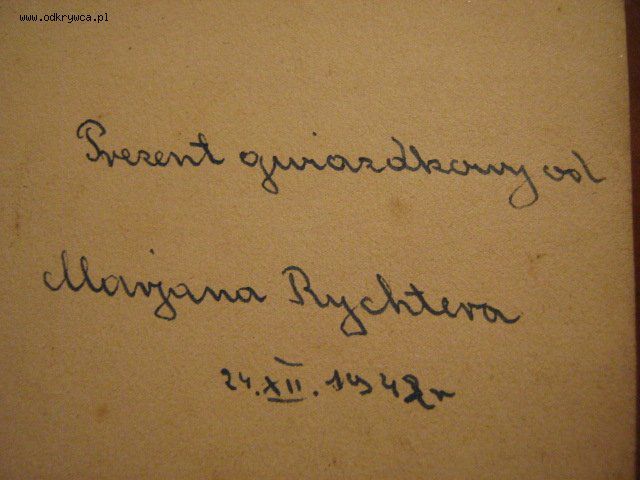 www.odkrywca.pl
Prezent gwiazdkowy od
Marjana Rychtera
24.XII.1942r